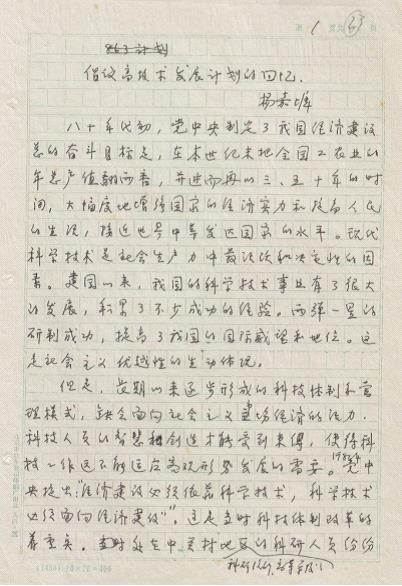 第 1 页共 63 页
863计划
倡议高技术发展计划的回忆.
杨嘉墀
八十年代初,党中央制定了我国经济建设
总的奋斗目标是,在本世纪末把全国工农业的
年总产值翻两番,并进而再以三、五十年的时
间,大幅度地增强国家的经济实力和提高人民
的生活,接近世界中等发达国家的水平。现代
科学技术是社会生产力中最活跃和决定性的因
素。建国以来,我国的科学技术事业有了很大
的发展,积累了不少成功的经验。两弹一星的
研制成功,提高了我国的国际威望和地位。这
是社会主义优越性的生动体现。
但是,长期以来逐步形成的科技体制和管
理模式,缺乏面向社会主义市场经济的活力.
科技人员的智慧和创造才能受到束缚,使得科
技工作远不能适应高速形势发展的需要。1985年党中
央提出:"经济建设必须依靠科学技术,科学技术
必须面向经济建设",这是当时科技体制改革的
着重点。当时处在中关村地区的科研人员纷纷
科研院所,高等学校